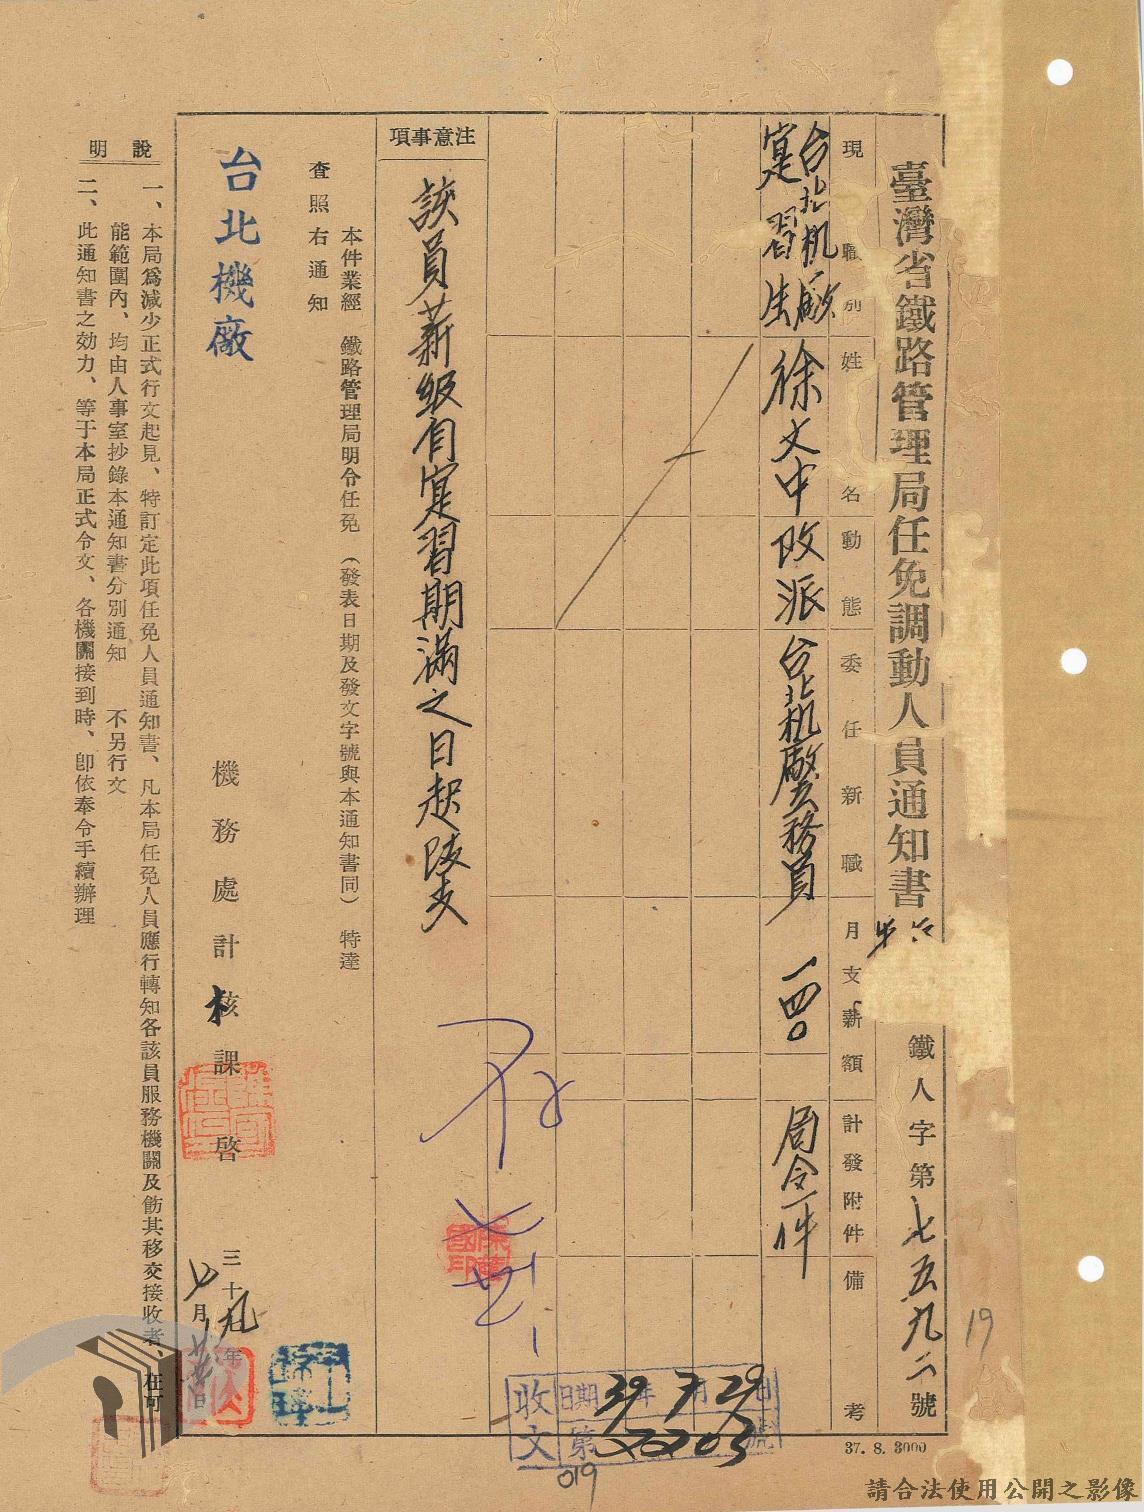 臺灣省鐵路管理局任免調動人員通知書
鐵人字第七五九二號
現職別
姓名
動態
委任新職
月支薪額
計發附件
備考
台北机廠
寔習生
徐文中
改派
台北机廠工務員
一四〇
局令一件
注意事項
該員薪級自寔習期滿之日起改支
本件業經 鐵路管理局明令任免(發表日期及發文字號與本通知書同) 特達
查照右通知
台北機廠
機務處計核課 啓
三十九年七月 日
說明
一、本局爲減少正式行文起見、特訂定此項任免人員通知書、凡本局任免人員應行轉知各該員服務機關及飭其移交接收者、在可
能範圍內、均由人事室抄錄本通知書分別通知 不另行文
二、此通知書之効力、等于本局正式令文、各機關接到時、卽依奉令手續辦理
收文
日期 39年7月29日
第 號
019
19
37. 8. 3000
請合法使用公開之影像